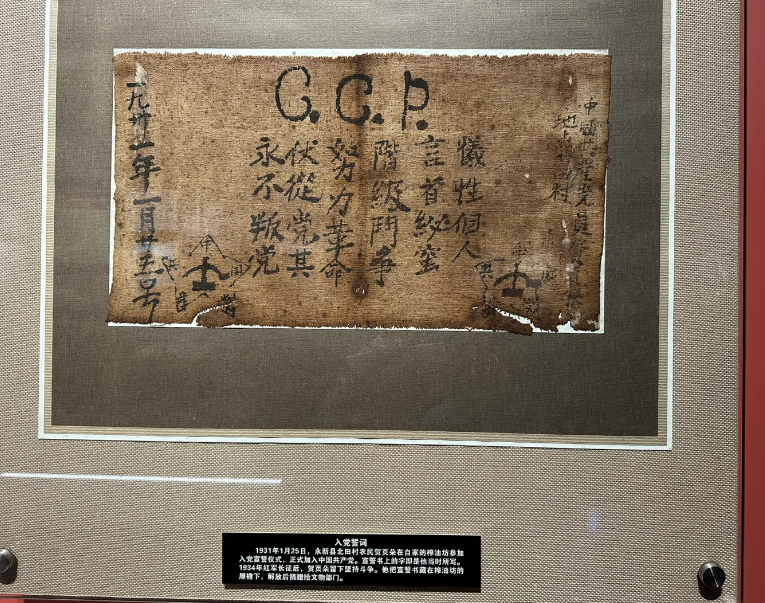 C.C.P.
中國共產党員
地点北田村
犧牲個人
言首紗蜜
階級鬥争
努力革命
伏從党其
永不叛党
一九卅一年一月廿五号
入党誓词
1931年1月25日，永新县北田村农民贺页朵在自家的榨油坊参加
入党宣誓仪式，正式加入中国共产党。宣誓书上的字即是他当时所写。
1934年红军长征后，贺页朵留下坚持斗争。他把宣誓书藏在榨油坊的
屋檐下，解放后捐赠给文物部门。